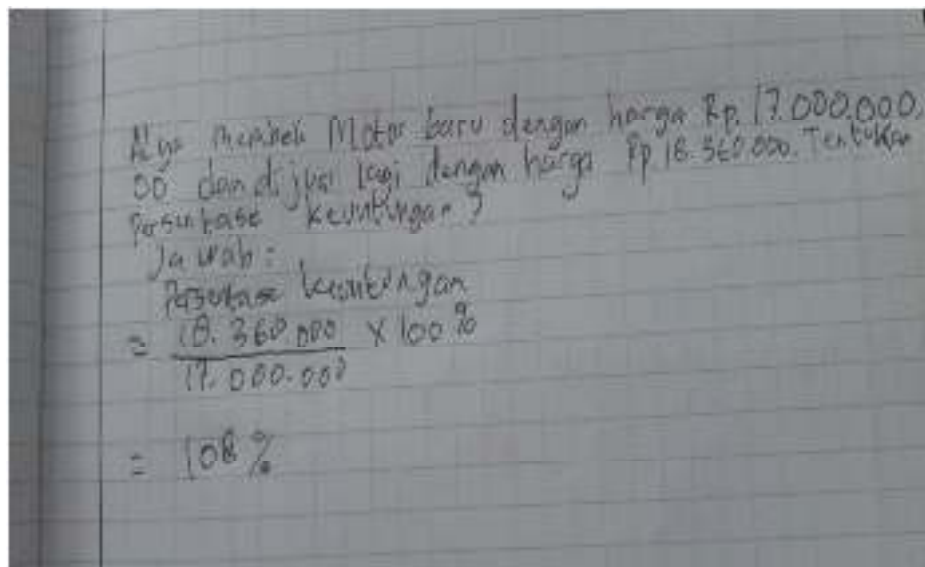 Alya membeli Motor baru dengan harga Rp. 17.000.000,
00 dan dijual lagi dengan harga Rp 18.360.000. Tentukan
Persentase keuntungan?
Jawab:
Persentase keuntungan
= 18.360.000 x 100 %
17.000.000
= 108 %